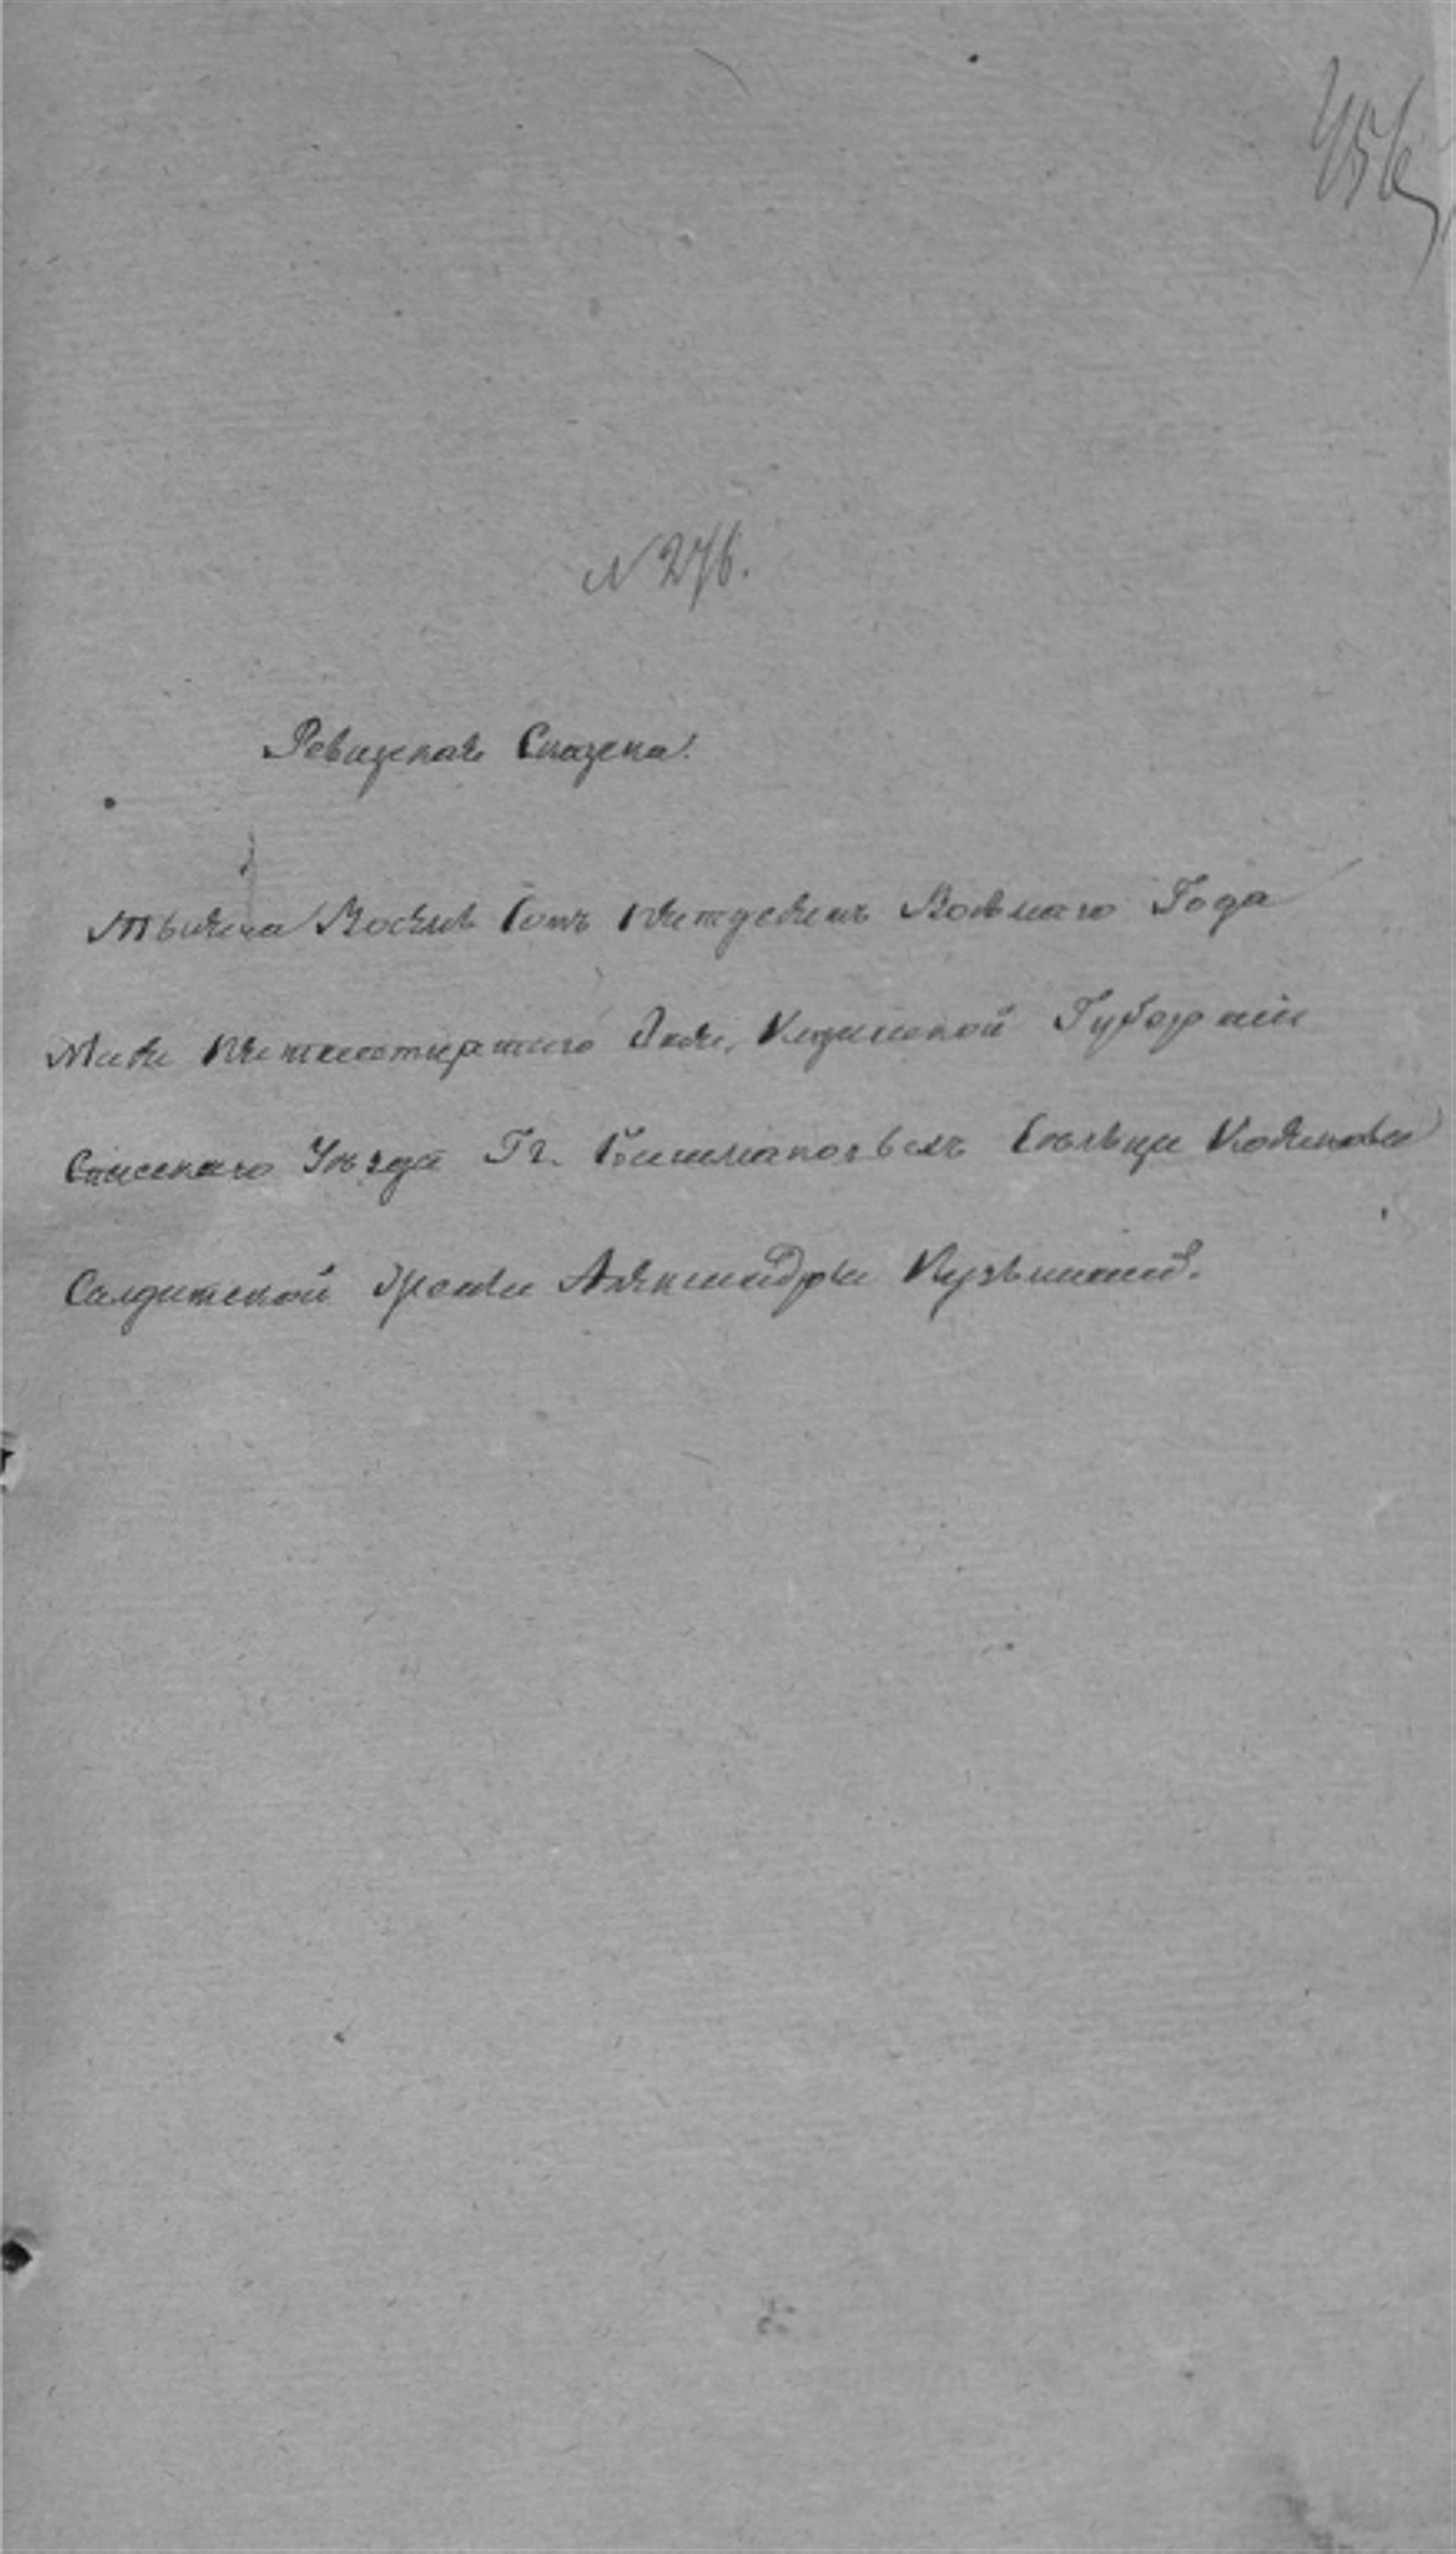 456
N 276.
Ревизская Сказка.
Тысяча Восемь Сотъ Пятдесятъ Восьмаго Года
Маія Пятнатцатаго дня, Казанской Губерніи
Спаского Уѣзда Гг.
Салдатской Жены Александры Кузьминой.